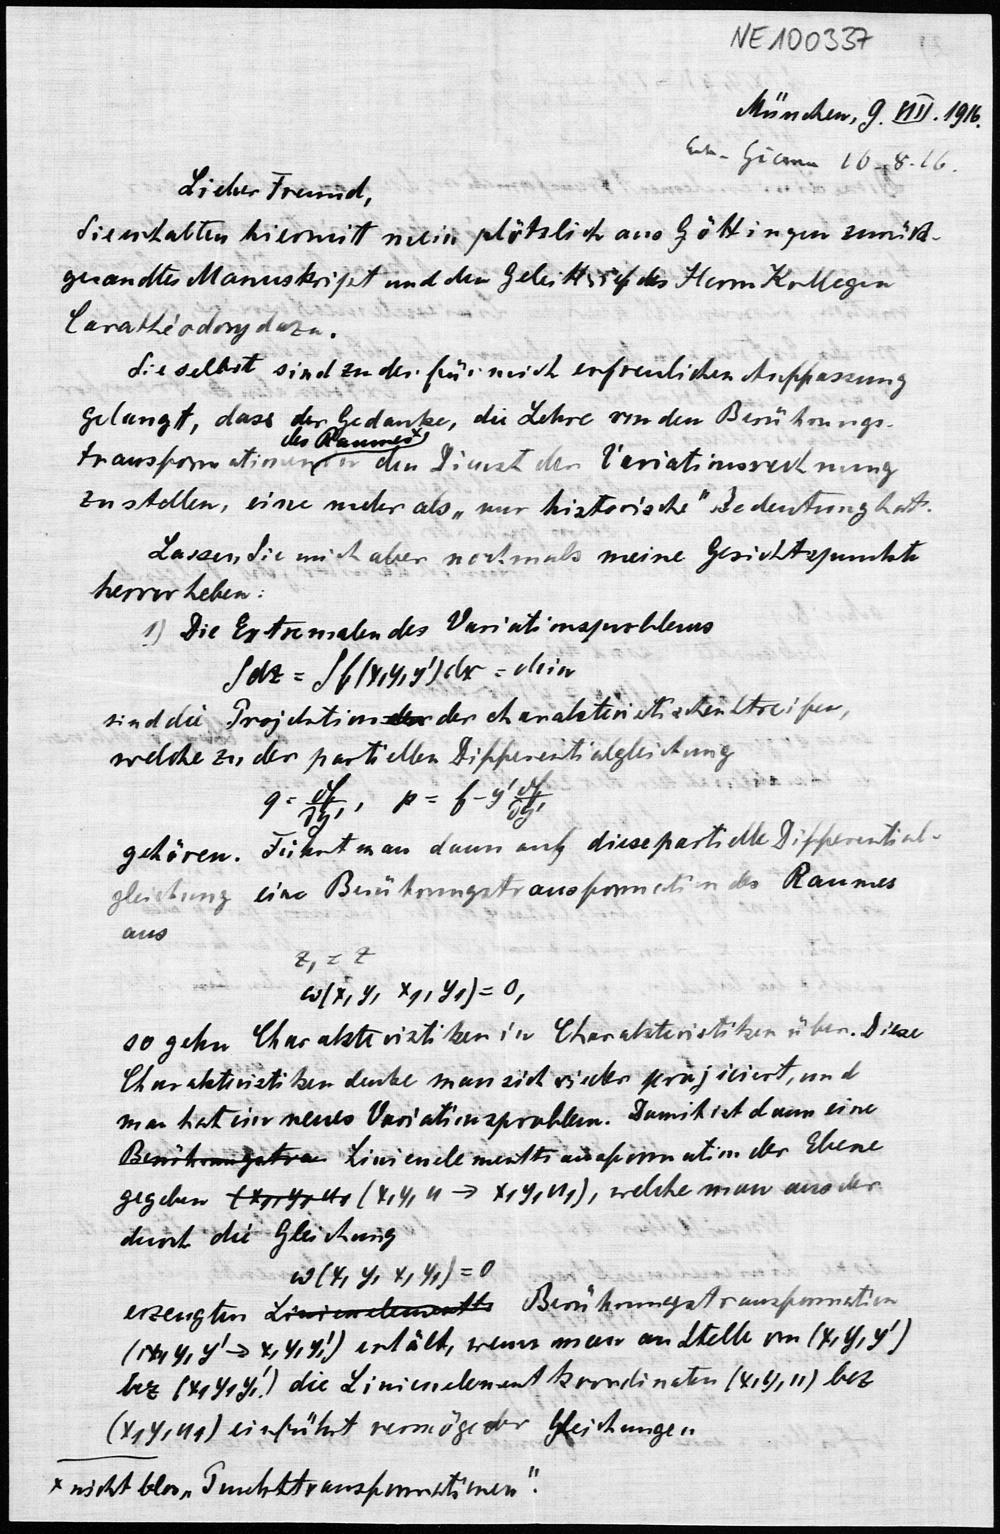 NE100337
München, 9. VIII. 1916.
16-8-16.
Lieber Freund,
Sie erhalten hiermitt mein plötzlich aus Göttingen zurück-
gesandtes Manuskript und den Geleitbrief des Herrn Kollegen
Carathéodory dazu.
Sie selbst sind zu der für mich erfreulichen Auffassung
gelangt, dass der Gedanke, die Lehre von den Berührungs-
des Raumes×)
transformationen in den Dienst der Variationsrechnung
zu stellen, eine mehr als „nur historische" Bedeutung hat.
Lassen Sie mich aber nochmals meine Gesichtspunkte
hervorheben:
1) Die Extremalen des Variationsproblems
∫dz = ∫f(x,y,y')dx = Min
sind die Projektionen der der charakteristischen Streifen,
welche zu der partiellen Differentialgleichung
q = ∂f/∂y', p = f - y' ∂f/∂y'
gehören. Führt man dann auf diese partielle Differential-
gleichung eine Berührungstransformation des Raumes
aus
z₁ = z
ω(x, y, x₁, y₁) = 0,
so gehn Charakteristiken in Charakteristiken über. Diese
Charakteristiken denke man sich wieder projiciert, und
man hat ein neues Variationsproblem. Damit ist dann eine
Berührungstra Linienelementtransformation der Ebene
gegeben (x₁, y₁ u₁ (x, y, u → x₁ y₁ u₁), welche man aus der
durch die Gleichung
ω(x, y, x₁ y₁) = 0
erzeugten Linienelementts Berührungstransformation
(x, y, y' → x₁ y₁ y₁') erhält, wenn man an Stelle von (x, y, y')
bez (x₁ y₁ y₁') die Linienelementkoordinaten (x, y, u) bez
(x₁ y₁ u₁) einführt vermöge der Gleichungen
× nicht blos „Punkttransformationen".